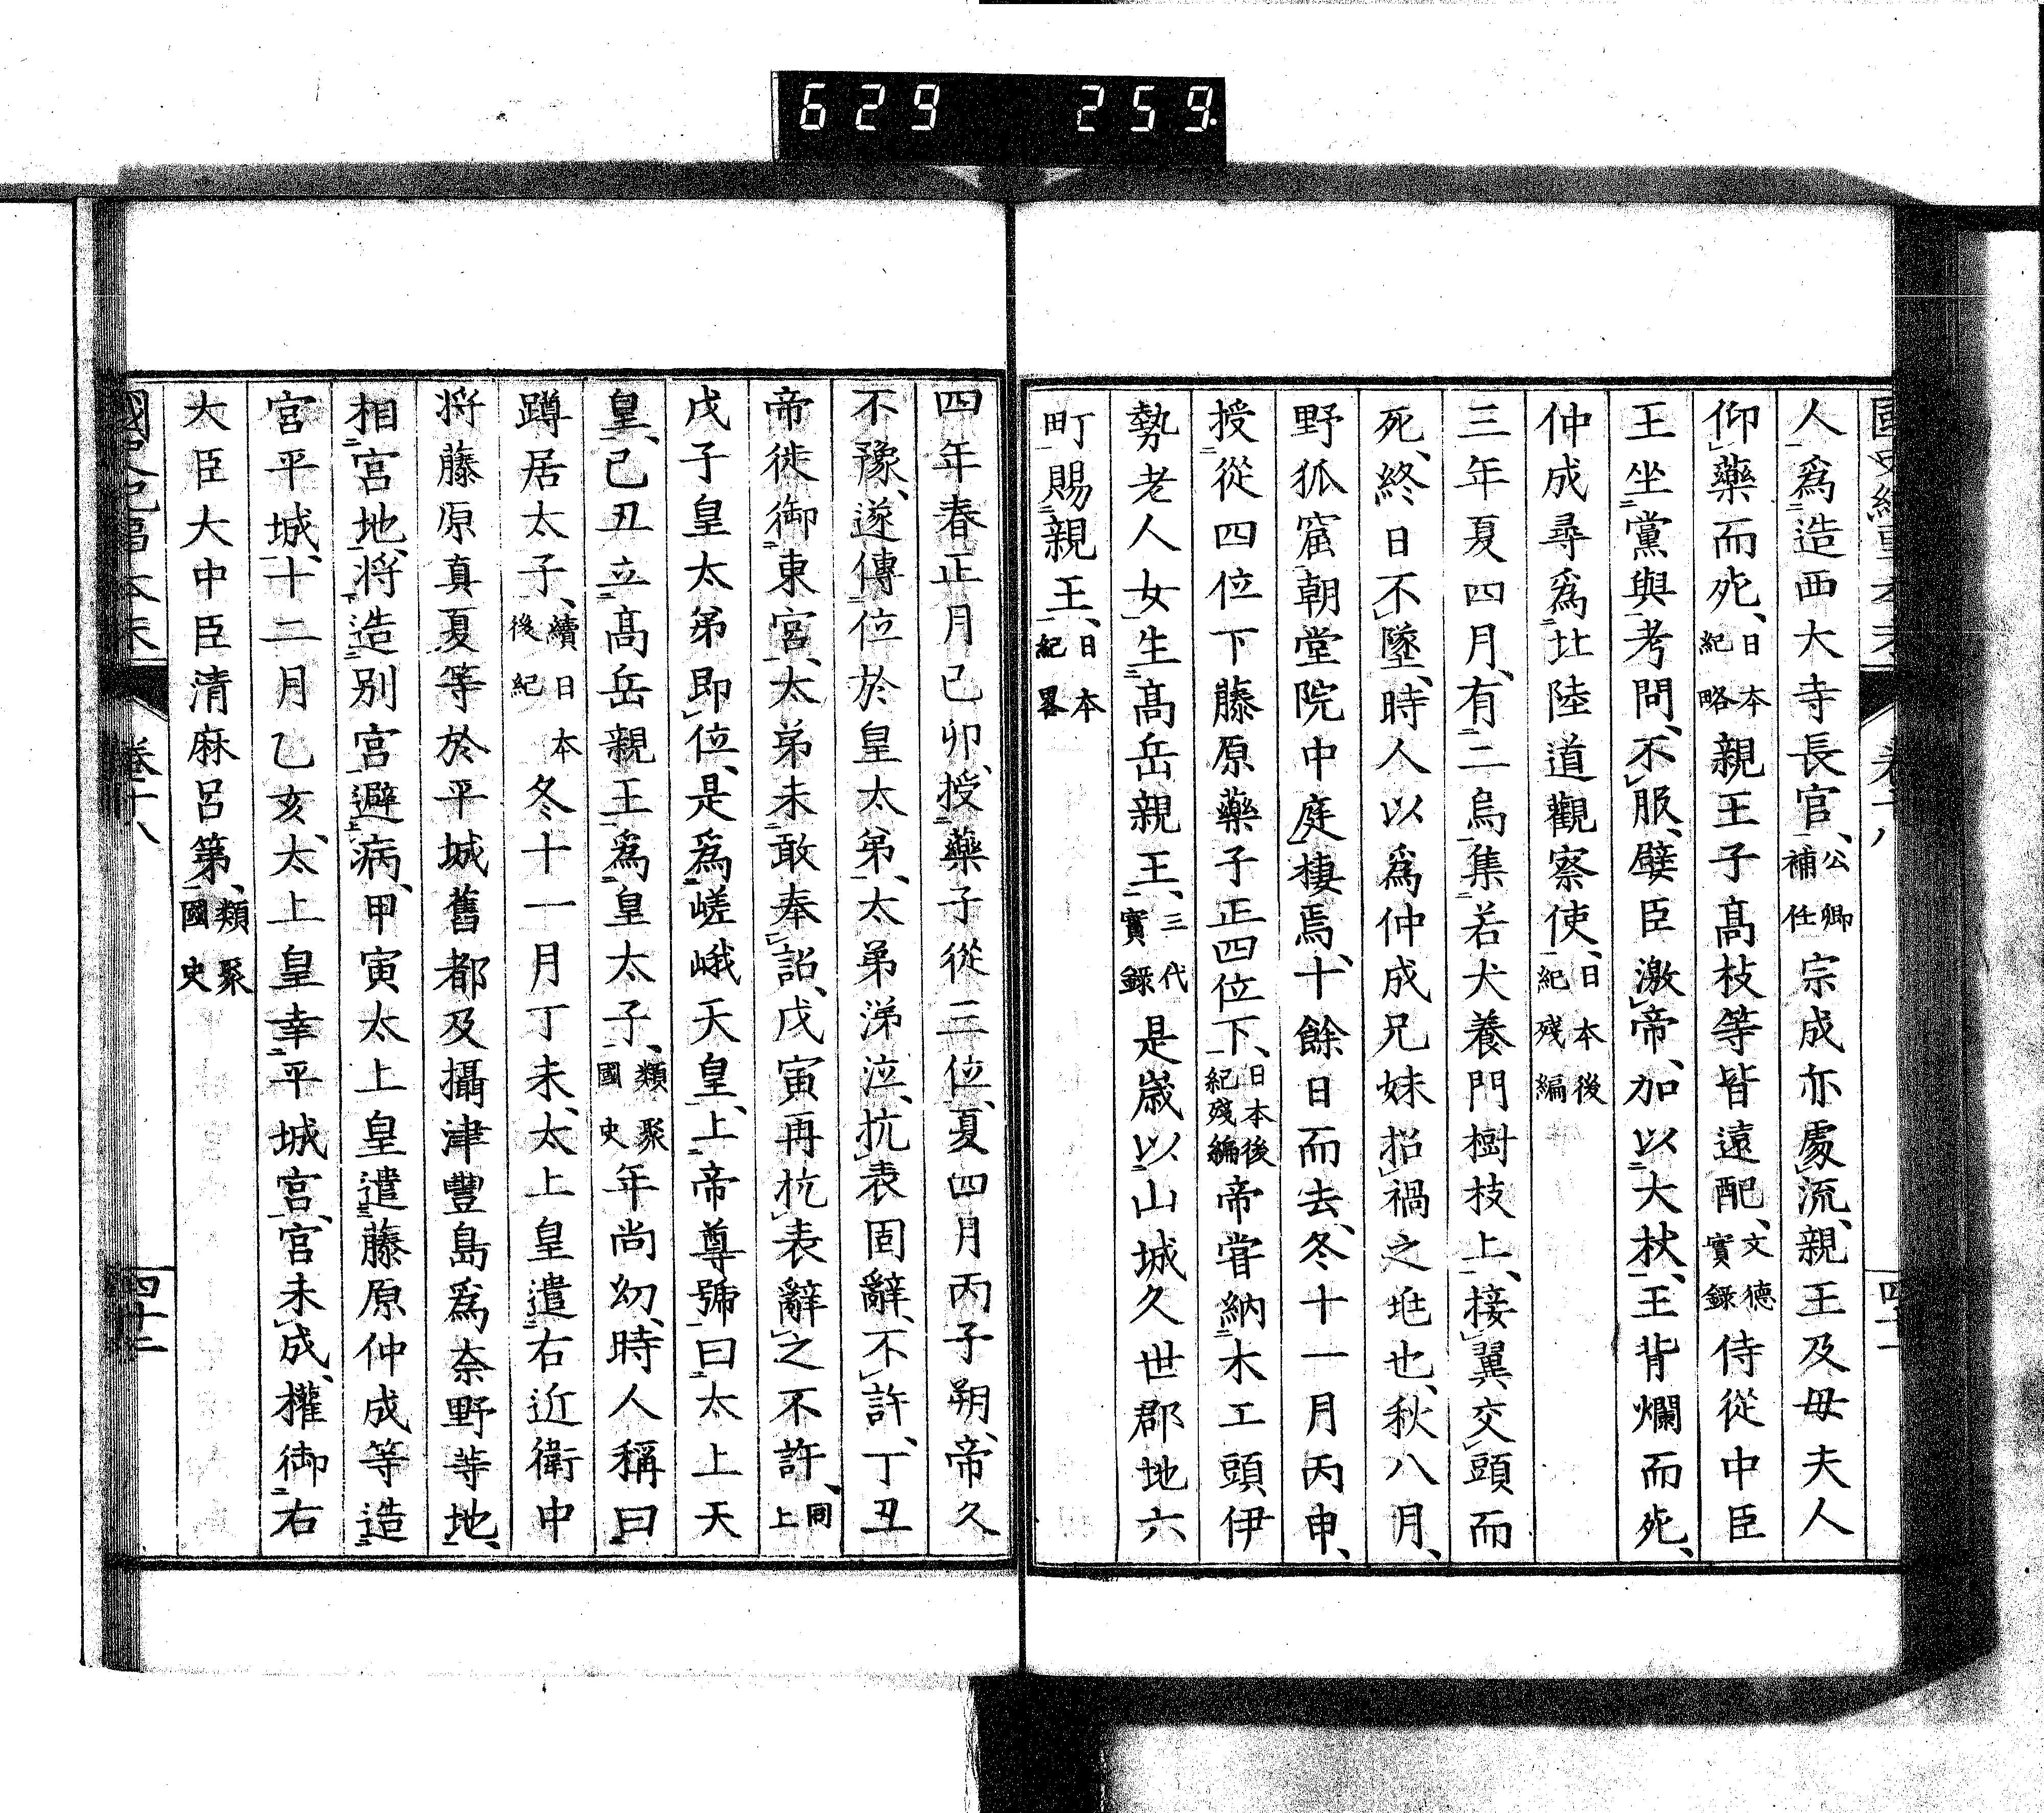 629 259
人爲造西大寺長官、公卿補任宗成亦處流、親王及毋夫人
仰藥而死、日本紀略親王子髙枝等皆遠配、文德實録侍從中臣
王坐黨與考問、不服、嬖臣激帝、加以大杖、王背爛而死、
仲成尋爲北陸道觀察使、日本後紀殘編
三年夏四月、有二烏集若犬養門樹枝上、接翼交頭而
死、終日不墜、時人以爲仲成兄妹招禍之兆也、秋八月、
野狐窟朝堂院中庭棲焉、十餘日而去、冬十一月丙申、
授從四位下藤原藥子正四位下、日本後紀殘編帝甞納木工頭伊
勢老人女生髙岳親王、三代實録是歳以山城久世郡地六
町賜親王、日本紀畧
四年春正月己卯、授藥子從三位、夏四月丙子朔、帝久
不豫、遂傳位於皇太弟、太弟涕泣、抗表固辭、不許、丁丑
帝徙御東宮、太弟未敢奉詔、戊寅再抗表辭之不許、同上
戊子皇太弟即位、是爲嵯峨天皇、上帝尊號曰太上天
皇、己丑立髙岳親王爲皇太子、類聚國史年尚幼、時人稱曰
蹲居太子、續日本後紀冬十一月丁未、太上皇遣右近衛中
将藤原真夏等於平城舊都及攝津豐島爲奈野等地、
相宮地、将造别宮避病、甲寅太上皇遣藤原仲成等造
宮平城、十二月乙亥、太上皇幸平城宮、宮未成、權御右
大臣大中臣清麻呂第、類聚國史
國史紀事本末 卷十八 四十二